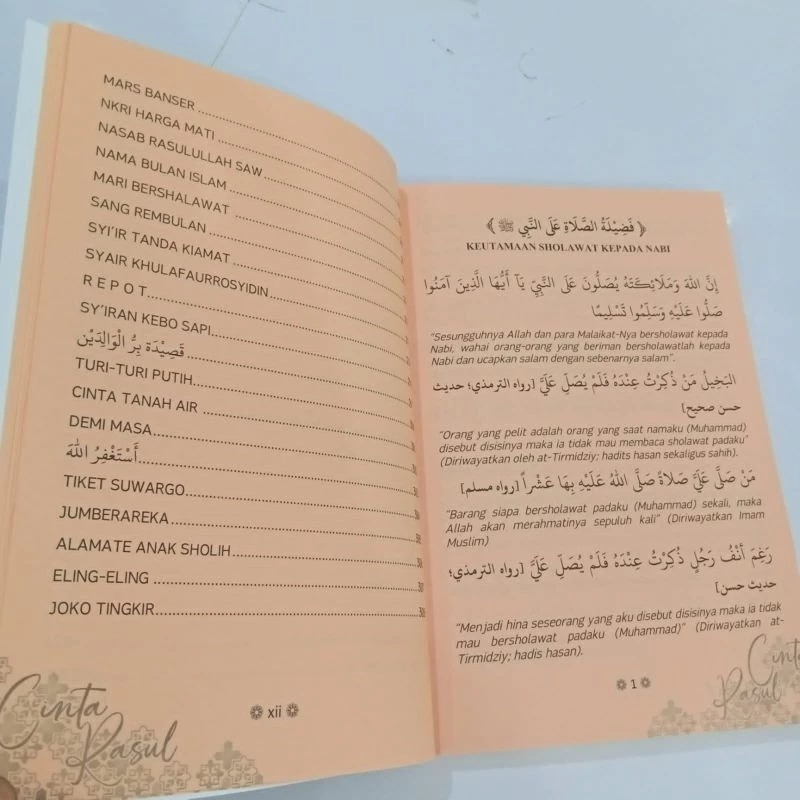 MARS BANSER
NKRI HARGA MATI
NASAB RASULULLAH SAW
NAMA BULAN ISLAM
MARI BERSHALAWAT
SANG REMBULAN
SYI'IR TANDA KIAMAT
SYAIR KHULAFAURROSYIDIN
R E P O T
SY'IRAN KEBO SAPI
قَصِيْدَة بِرُّ الْوَالِدَيْن
TURI-TURI PUTIH
CINTA TANAH AIR
DEMI MASA
أَسْتَغْفِرُ اللهَ
TIKET SUWARGO
JUMBERAREKA
ALAMATE ANAK SHOLIH
ELING-ELING
JOKO TINGKIR
xii
Cinta
Rasul
﴿ فَضِيْلَةُ الصَّلَاةِ عَلَى النَّبِي ﷺ ﴾
KEUTAMAAN SHOLAWAT KEPADA NABI
إِنَّ اللهَ وَمَلَائِكَتَهُ يُصَلُّونَ عَلَى النَّبِيِّ يَآ أَيُّهَا الَّذِينَ آمَنُوا
صَلُّوا عَلَيْهِ وَسَلِّمُوا تَسْلِيمًا
"Sesungguhnya Allah dan para Malaikat-Nya bersholawat kepada
Nabi, wahai orang-orang yang beriman bersholawatlah kepada
Nabi dan ucapkan salam dengan sebenarnya salam".
البَخِيلُ مَنْ ذُكِرْتُ عِنْدَهُ فَلَمْ يُصَلِّ عَلَيَّ [رواه الترمذي؛ حديث
حسن صحيح]
"Orang yang pelit adalah orang yang saat namaku (Muhammad)
disebut disisinya maka ia tidak mau membaca sholawat padaku"
(Diriwayatkan oleh at-Tirmidziy; hadits hasan sekaligus sahih).
مَنْ صَلَّى عَلَيَّ صَلَاةً صَلَّى اللهُ عَلَيْهِ بِهَا عَشْراً [رواه مسلم]
"Barang siapa bersholawat padaku (Muhammad) sekali, maka
Allah akan merahmatinya sepuluh kali" (Diriwayatkan Imam
Muslim)
رَغِمَ أَنْفُ رَجُلٍ ذُكِرْتُ عِنْدَهُ فَلَمْ يُصَلِّ عَلَيَّ [رواه الترمذي؛
حديث حسن]
"Menjadi hina seseorang yang aku disebut disisinya maka ia tidak
mau bersholawat padaku (Muhammad)" (Diriwayatkan at-
Tirmidziy; hadis hasan).
1
Cinta
Rasul